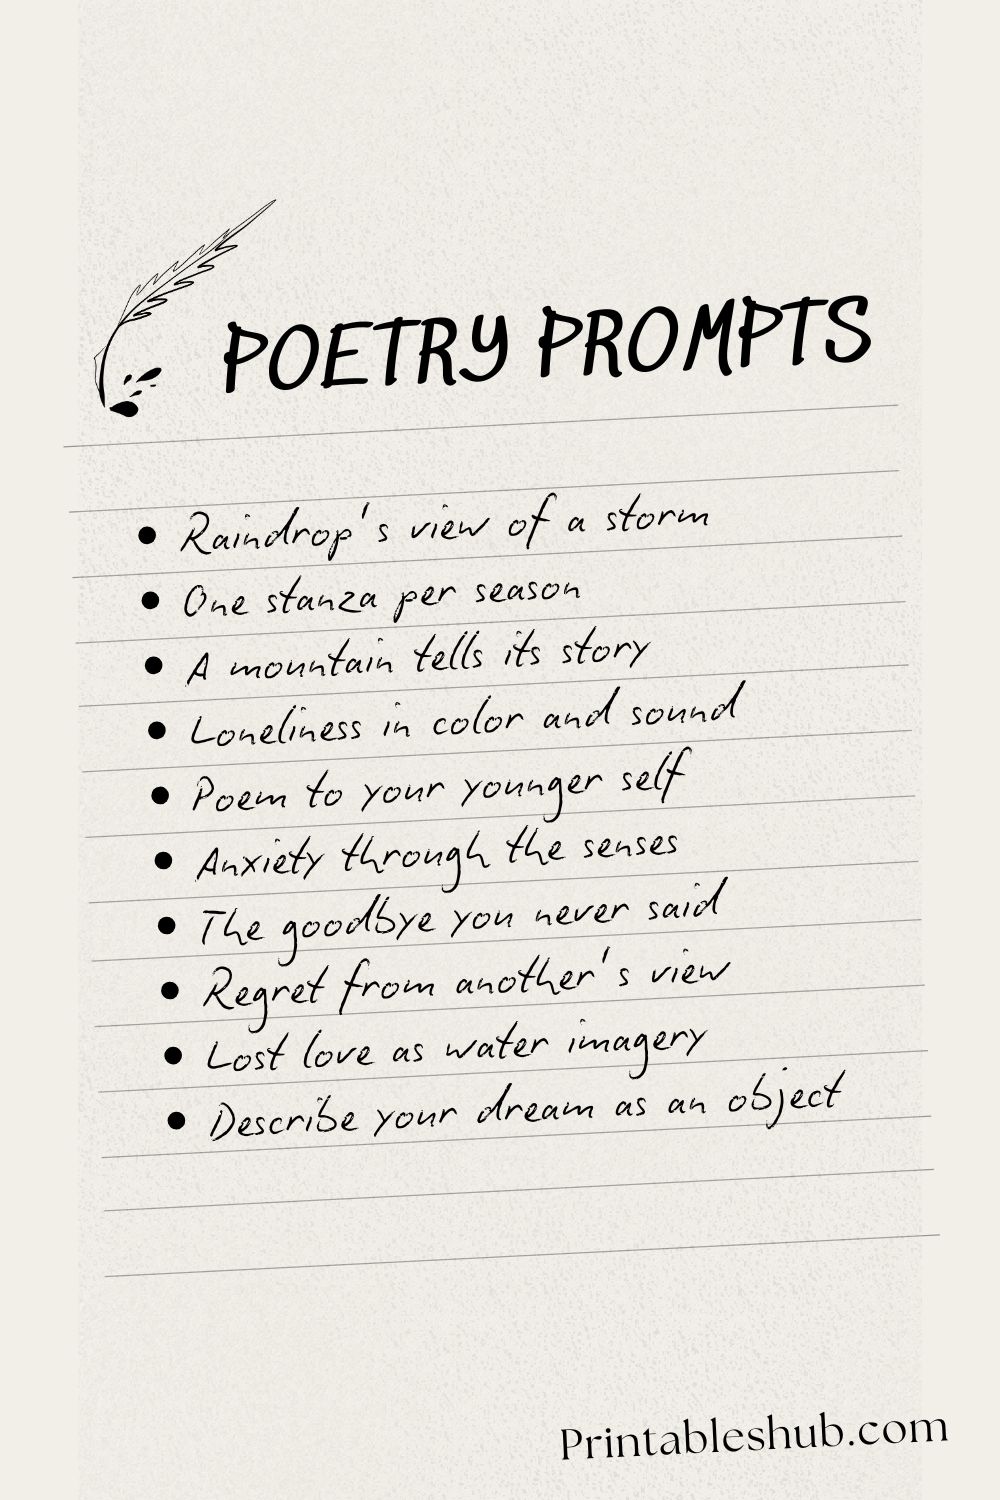 POETRY PROMPTS
• Raindrop's view of a storm
• One stanza per season
• A mountain tells its story
• Loneliness in color and sound
• Poem to your younger self
• Anxiety through the senses
• The goodbye you never said
• Regret from another's view
• Lost love as water imagery
• Describe your dream as an object
Printableshub.com